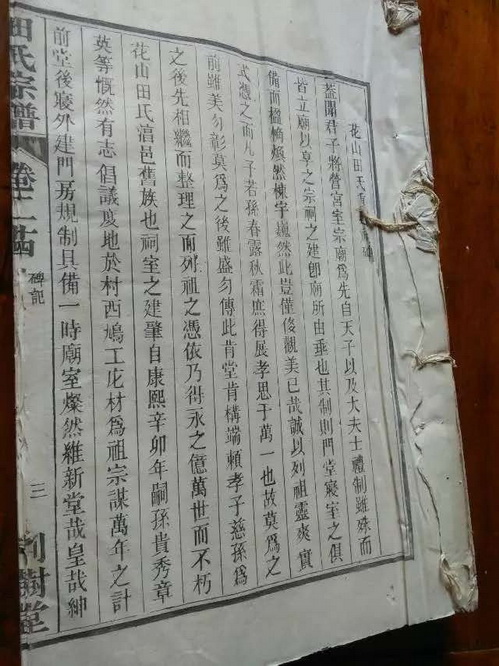 花山田氏
蓋聞君子將營宮室宗廟爲先自天子以及大夫士禮制雖殊而
皆立廟以享之宗祠之建卽廟所由垂也其制則門堂寢室之俱
備而楹桷煥然棟宇巍然此豈僅侈觀美已哉誠以列祖靈爽實
式憑之而凢子若孫春露秋霜庶得展孝思于萬一也故莫爲之
前雖美勿彰莫爲之後雖盛勿傳此肯堂肯構端賴孝子慈孫爲
之後先相繼而整理之而列祖之憑依乃得永之億萬世而不朽
花山田氏涫邑舊族也祠室之建肇自康熙辛卯年嗣孫貴秀章
英等慨然有志倡議度地於村西鳩工庀材爲祖宗謀萬年之計
前堂後寢外建門房規制具備一時廟室燦然維新堂哉皇哉紳
田氏宗譜
卷二十四
碑記
三
樹堂